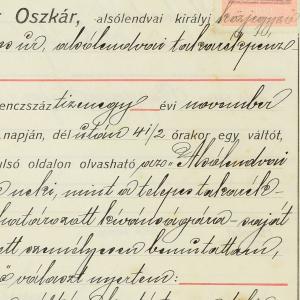 Oszkár, alsólendvai királyi közjegyző
úr, alsólendvai takarékpénz
enczszáz tizenegy évi november
napján, dél után 4 1/2 órakor egy váltót,
ulsó oldalon olvasható "Alsólendvai
neki, mint a telepes takarék-
határozott kívánságára saját
ett személyesen bemutattam,
választ nyertem: